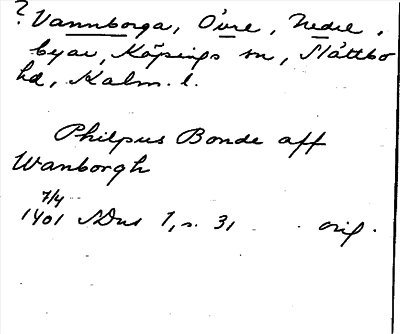 ? Vannborga, Övre, Nedre,
byar, Köpings sn, Slättbo
hd, Kalm. l.
Philpus Bonde aff
Wanborgh
7/4
1401 SDns 1, s. 31 orig.